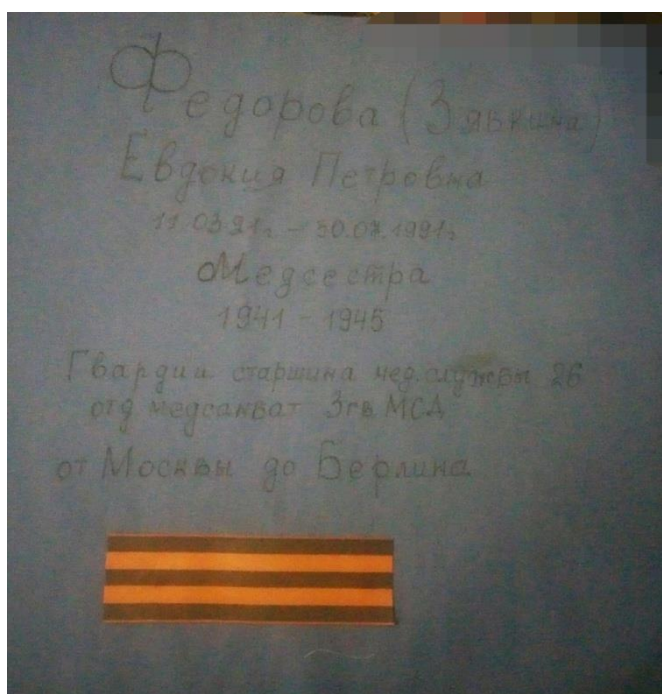 Федорова (Зявкина)
Евдокия Петровна
11.03.21г. - 30.07.1991г.
Медсестра
1941 - 1945
Гвардии старшина мед.службы 26
отд медсанбат 3гв МСД
от Москвы до Берлина